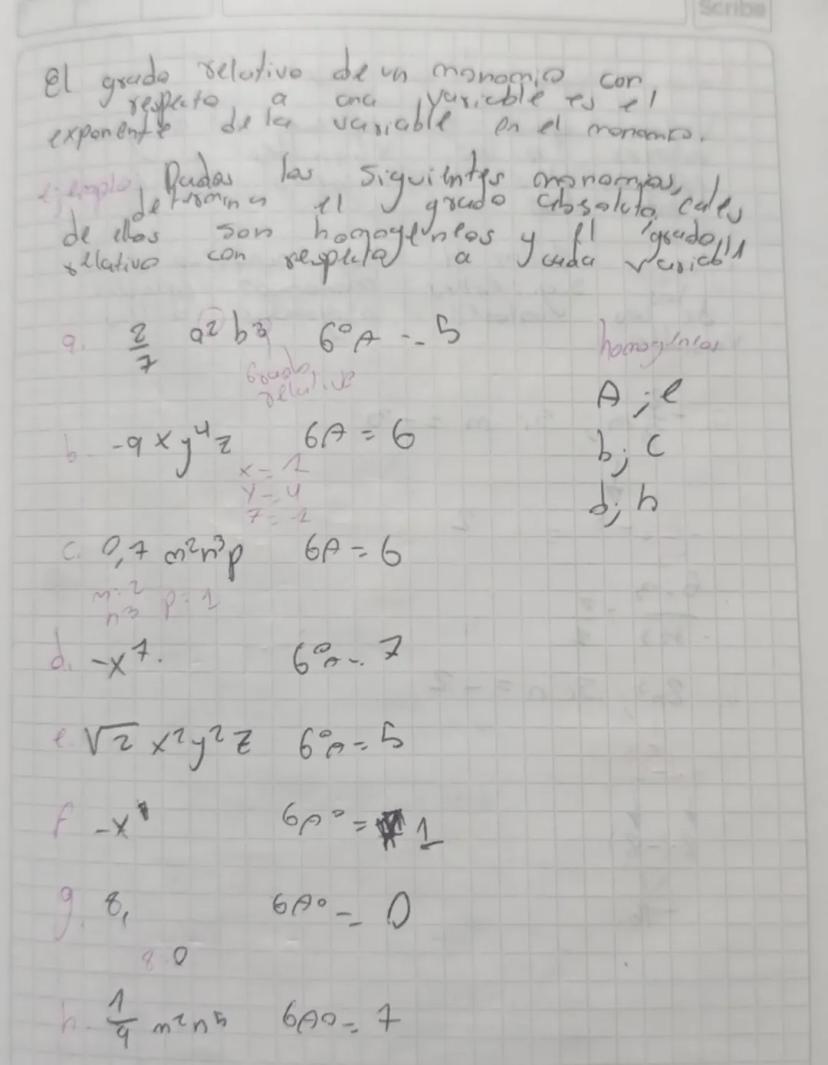 Scribe
El grado relativo de un monomio con
respecto a una variable es el
exponente de la variable en el monomio.
ejemplo Dadas los siguientes monomios,
determina el grado absoluto, cales
de ellos son homogeneos y el grado
relativo con respecto a cada variable
a. 2/7 a²b³ G°A = 5
homogeneos
grado relativo
A; e
b. -9xy⁴z GA = 6
b; c
x = 1
y = 4
z = 1
d; h
c. 0,7 m²n³p GA = 6
m=2
n=3 p=1
d. -x⁷. G°A = 7
e. √2 x²y²z G°A = 5
f -x¹ GA° = 1
g. 8, GA° = 0
8 0
h. 1/9 m²n⁵ GA° = 7